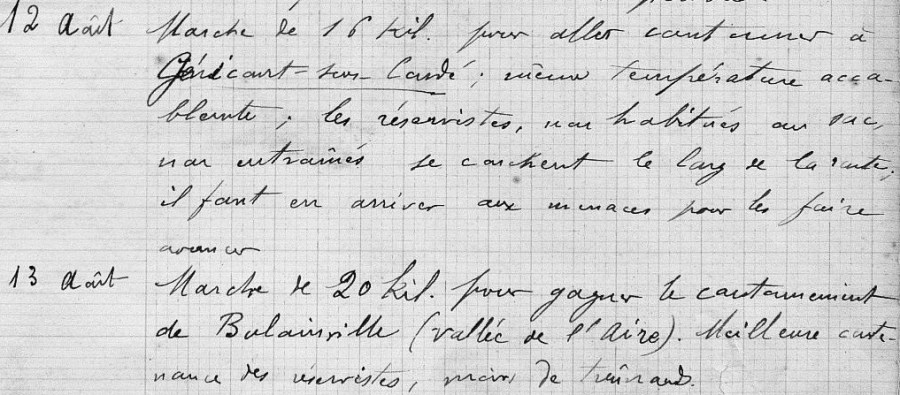 12 Août Marche de 16 Kil. pour aller cantonner à
Géricourt-sur-Condé ; même température acca-
blante ; les réservistes, non habitués au sac,
non entraînés se couchent le long de la route ;
il faut en arriver aux menaces pour les faire
avancer
13 Août Marche de 20 Kil. pour gagner le cantonnement
de Bulainville (vallée de l'Aire). Meilleure conte-
nance des réservistes, moins de traînards.